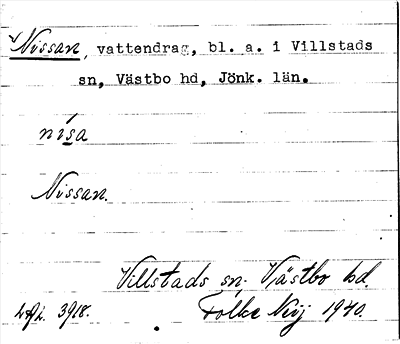 Nissan, vattendrag, bl. a. i Villstads
sn, Västbo hd, Jönk. län.
nísa
Nissan.
Villstads sn. Västbo hd.
3918. Folke Neij 1940.